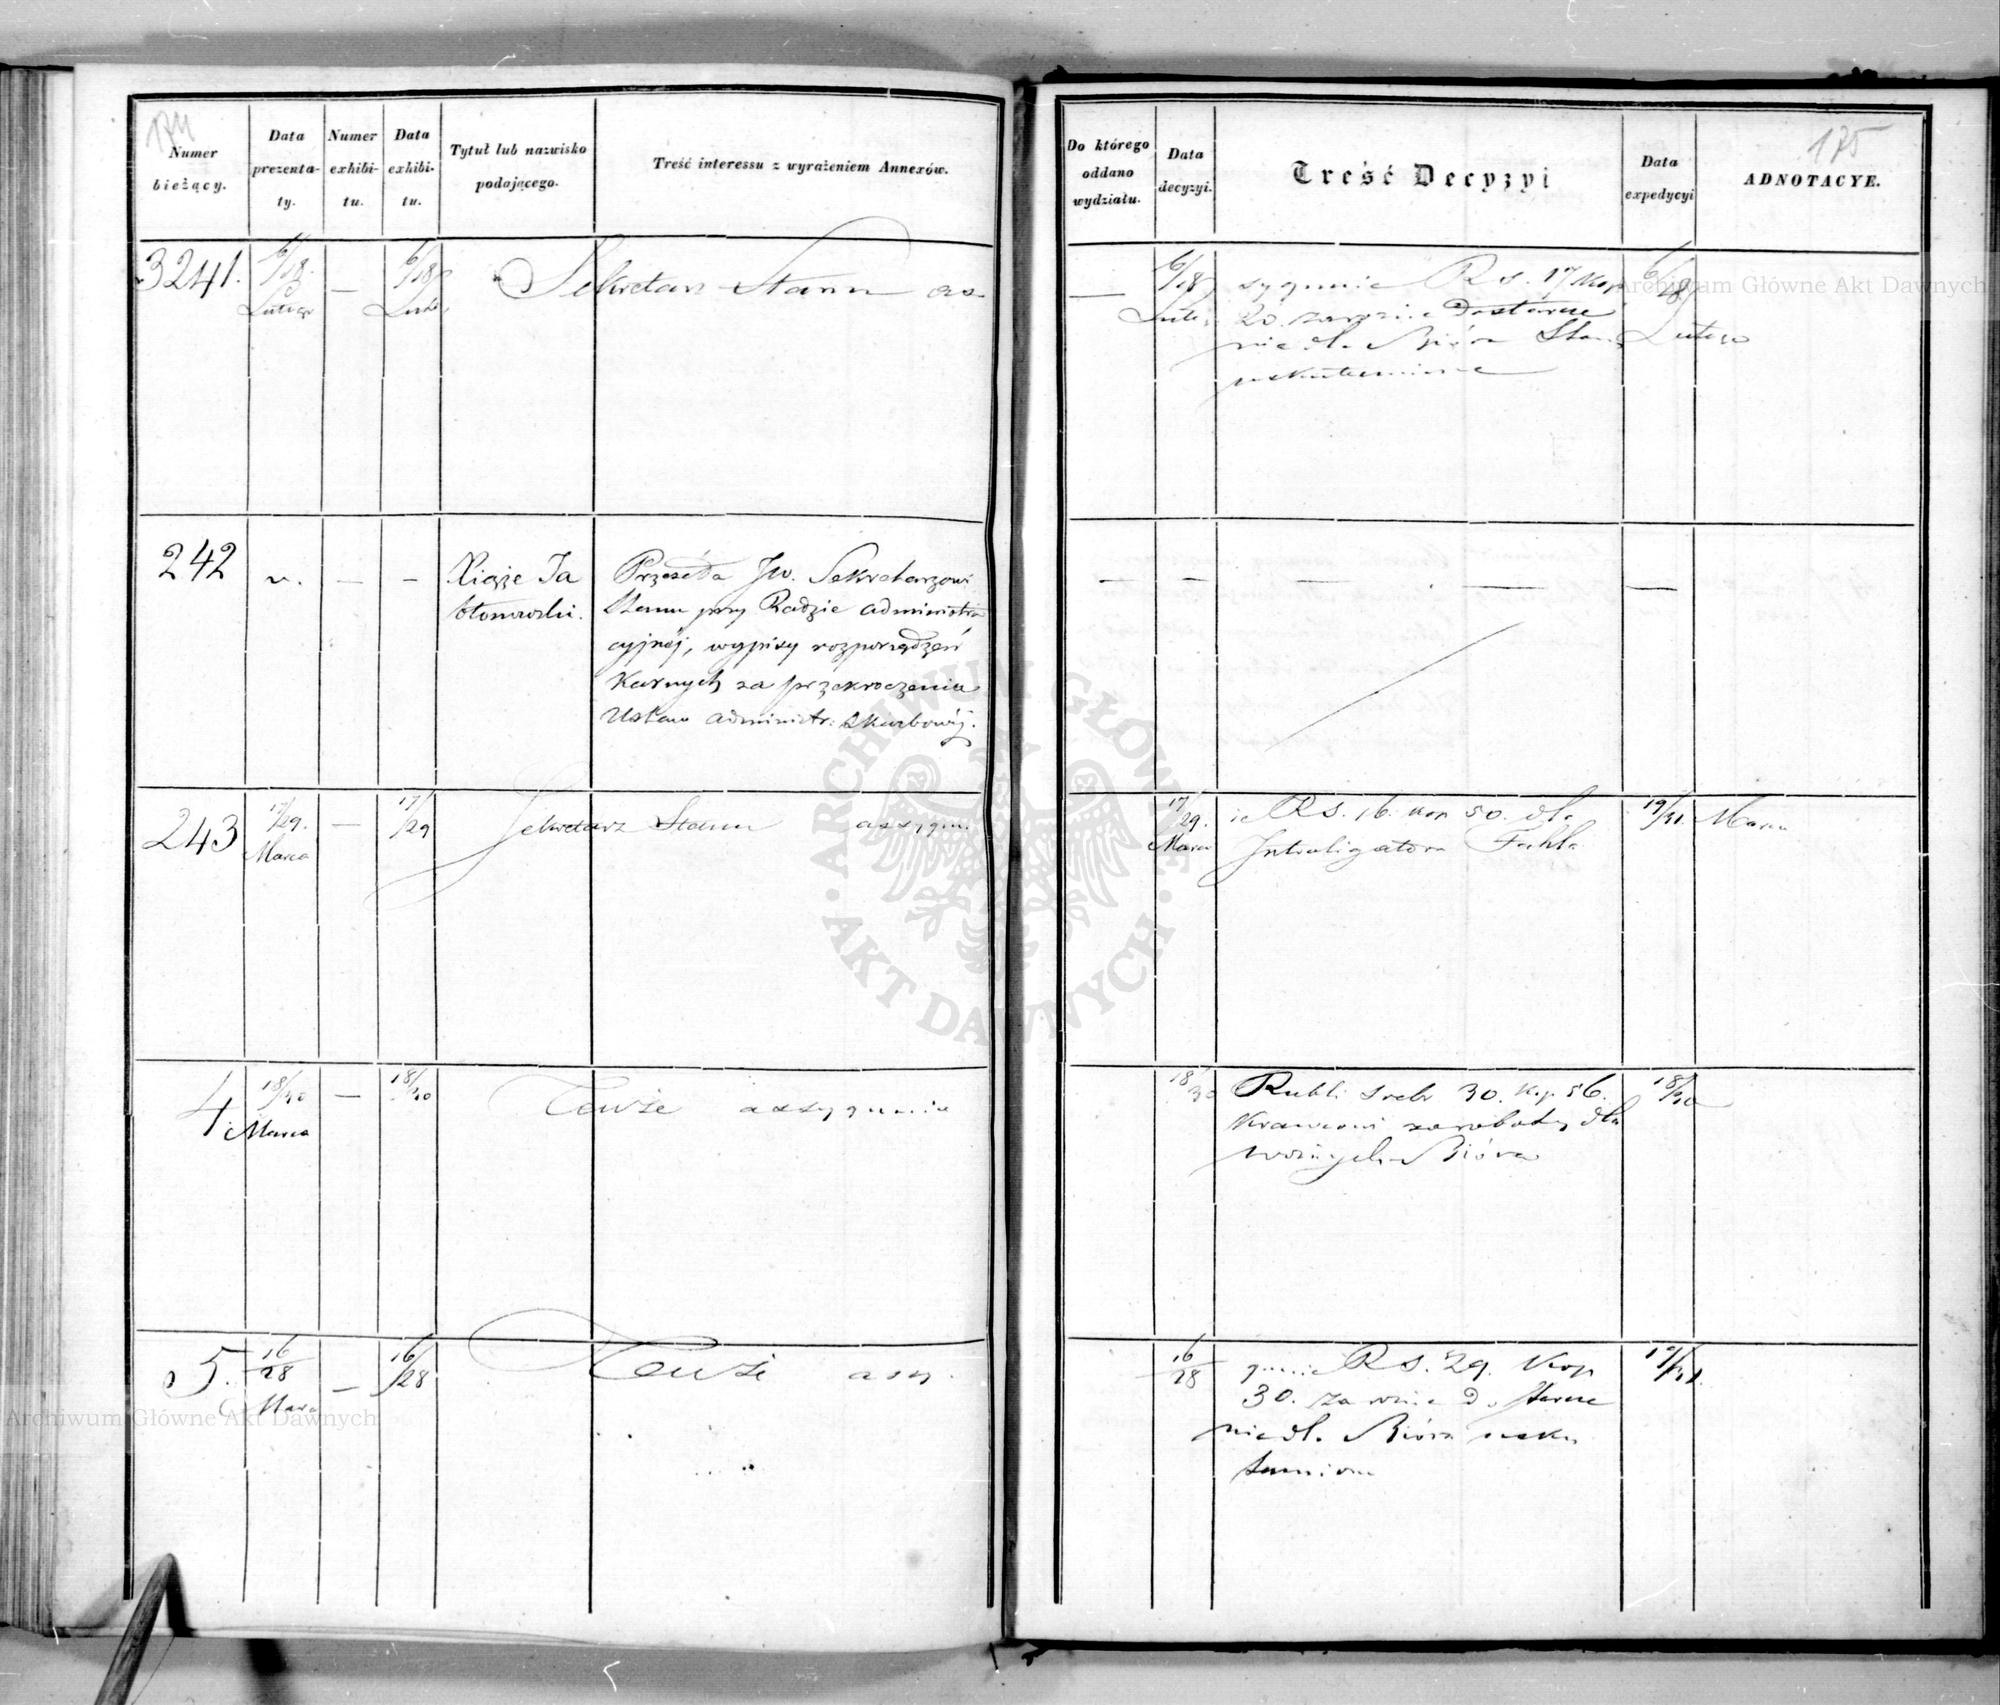 174
Numer bieżący.
Data prezenta- ty.
Numer exhibi- tu.
Data exhibi- tu.
Tytuł lub nazwisko podającego.
Treść interessu z wyrażeniem Annexów.
3241. 6/18. Lutego — 6/18 Sekretarz Stanu as
242 — —
Xiąże Ja
błonowski.
Przeséła Jw. Sekretarzowi
Stanu przy Radzie administra
cyjnéj, wypisy rozporządzeń
Karnych za przekroczenia
Ustaw administr: Skarbowéj.
243 17/29. Marca — 17/29 Sekretarz Stanu assygnu.
4 18/30 Marca — 18/30 Tenże assygnuie
5. 16/28 Marca — 16/28 Tenże asy.
175
Do którego oddano wydziału.
Data decyzyi.
Treść Decyzyi
Data expedycyi
ADNOTACYE.
— 6/18 sygnuie Rs. 17 Kop 6/18 Lutego
20. za różne Dostarcze
nie dla Bióra Stanu
uskutecznione
— — — —
17/29. Marca ie Rs. 16. Kop 50. dla 19/31. Marca
Introligatora Fahla
18/30 Rubli srebr 30. Kop. 56. 18/30
Krawcowi za roboty dla
woźnych Bióra
16/28 gnuie Rs. 29. Kop 19/31.
30. za różne Dostarcze
nie dla Bióra usku
tecznione
Archiwum Główne Akt Dawnych
ARCHIWUM GŁÓWNE · AKT DAWNYCH ·
Archiwum Główne Akt Dawnych